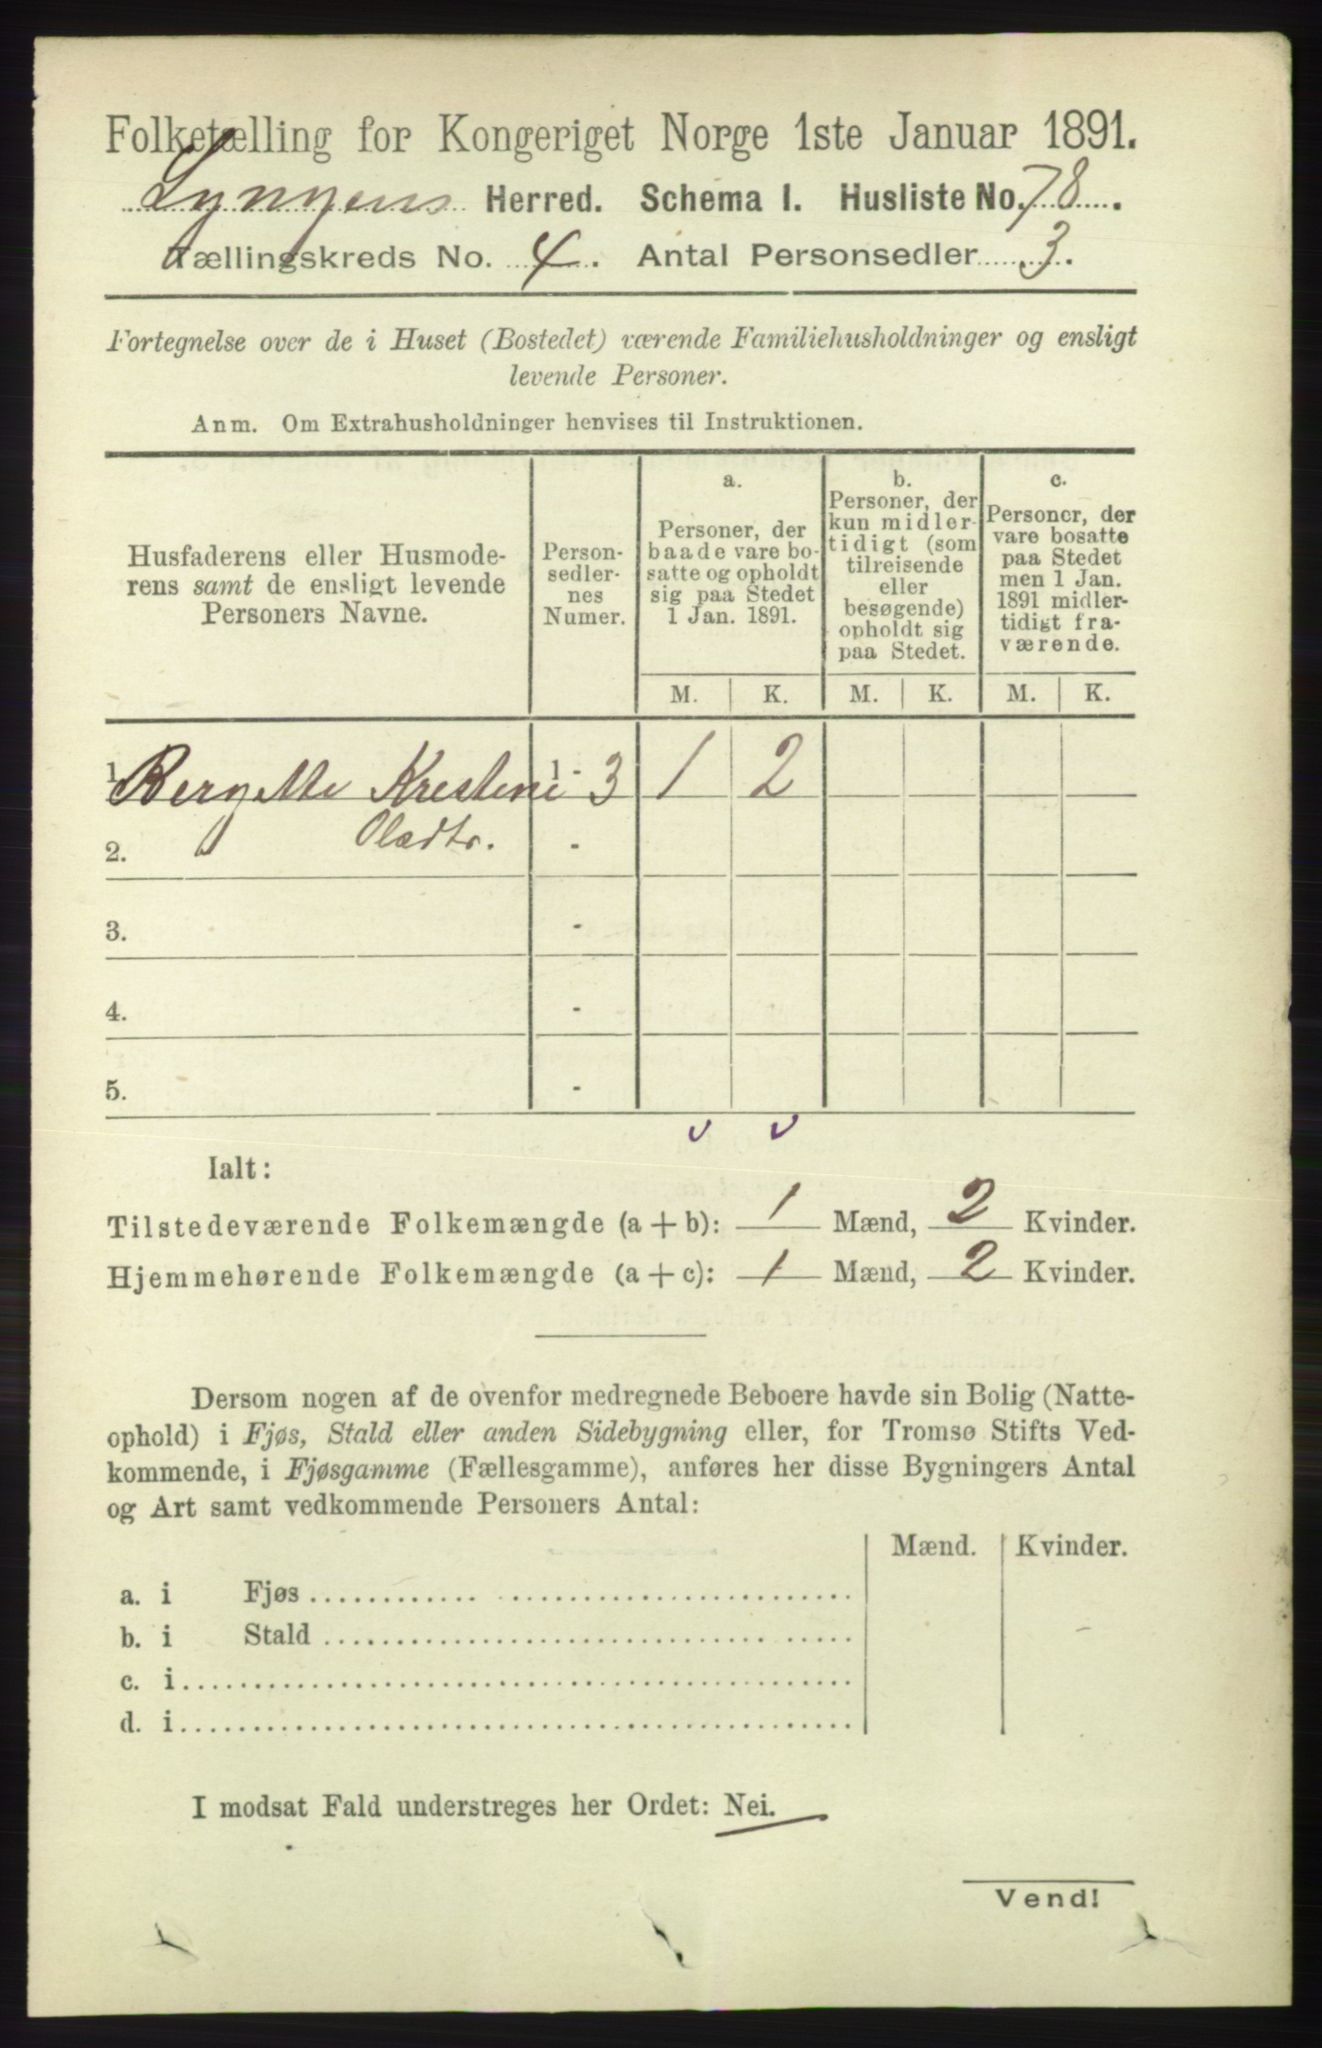 Folketælling for Kongeriget Norge 1ste Januar 1891.
Lyngens Herred. Schema I. Husliste No. 78.
Tællingskreds No. 4. Antal Personsedler 3.
Fortegnelse over de i Huset (Bostedet) værende Familiehusholdninger og ensligt
levende Personer.
Anm. Om Extrahusholdninger henvises til Instruktionen.
Husfaderens eller Husmode-
rens samt de ensligt levende
Personers Navne.
Person-
sedler-
nes
Numer.
a.
Personer, der
baade vare bo-
satte og opholdt
sig paa Stedet
1 Jan. 1891.
b.
Personer, der
kun midler-
tidigt (som
tilreisende
eller
besøgende)
opholdt sig
paa Stedet.
c.
Personer, der
vare bosatte
paa Stedet
men 1 Jan.
1891 midler-
tidigt fra-
værende.
M. K. M. K. M. K.
1. Bergitte Krestine 1 - 3 1 2
Olasdtr.
2. -
3. -
4. -
5. -
Ialt:
Tilstedeværende Folkemængde (a + b): 1 Mænd, 2 Kvinder.
Hjemmehørende Folkemængde (a + c): 1 Mænd, 2 Kvinder.
Dersom nogen af de ovenfor medregnede Beboere havde sin Bolig (Natte-
ophold) i Fjøs, Stald eller anden Sidebygning eller, for Tromsø Stifts Ved-
kommende, i Fjøsgamme (Fællesgamme), anføres her disse Bygningers Antal
og Art samt vedkommende Personers Antal:
Mænd. Kvinder.
a. i Fjøs
b. i Stald
c. i
d. i
I modsat Fald understreges her Ordet: Nei.
Vend!